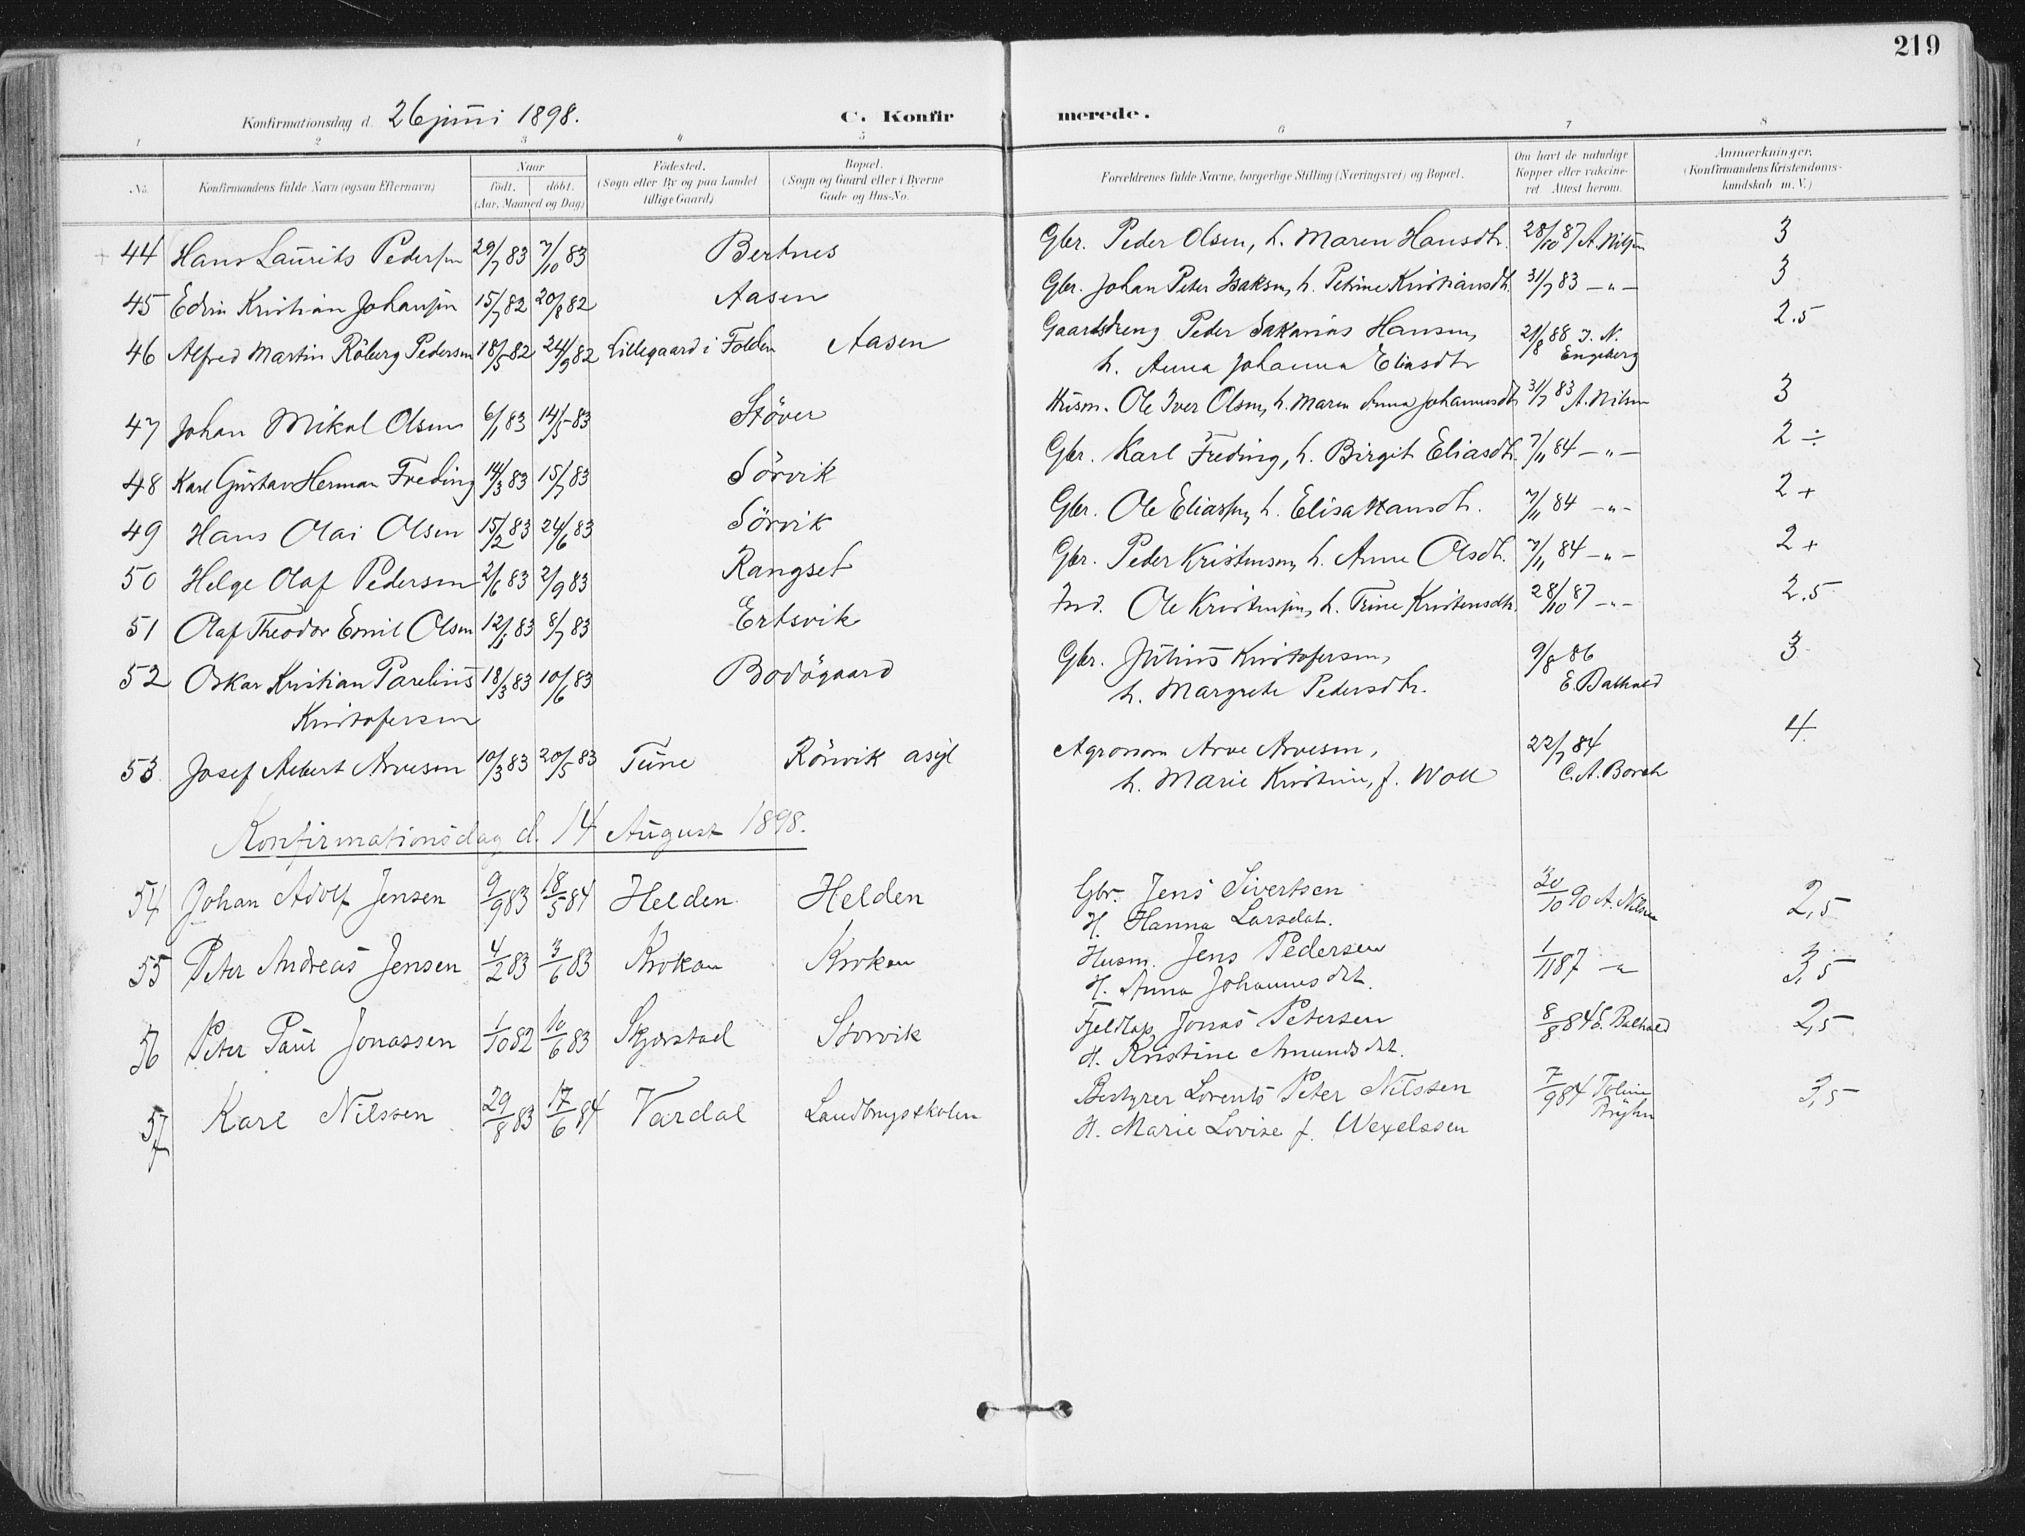 219
Konfirmationsdag d. 26 juni 1898. C. Konfirmerede.
1 2 3 4 5 6 7 8
No. Konfirmandens fulde Navn (ogsaa Efternavn) Naar født. døbt. (Aar, Maaned og Dag) Fødested. (Sogn eller By og paa Landet tillige Gaard) Bopæl. (Sogn og Gaard eller i Byerne Gade og Hus-No. Forældrenes fulde Navne, borgerlige Stilling (Næringsvei) og Bopæl. Om havt de naturlige Kopper eller vakcineret Attest herom. Anmærkninger. (Konfirmandens Kristendomskundskab m. V.)
44 Hans Laurits Pedersen 29/7 83 7/10 83 Bertnes Gbr. Peder Olsen, h. Maren Hansdtr. 28/10 87 A. Nilsen 3
45 Edvin Kristian Johansen 15/7 82 20/8 82 Aasen Gbr. Johan Peter Isaksen, h. Petrine Kristiansdtr. 31/7 83 -"- 3
46 Alfred Martin Röberg Pedersen 18/5 82 24/9 82 Lillegaard i Folden Aasen Gaardsdreng Peder Sakarias Hansen, 21/8 88 J. N. Engeberg 2.5
h. Anna Johanna Eliasdtr
47 Johan Mikal Olsen 6/1 83 14/5 83 Støver Husm. Ole Iver Olsen, h. Maren Anna Johannesdtr 31/7 83 A. Nilsen 3
48 Karl Gustav Herman Freding 14/3 83 15/7 83 Sörvik Gbr. Karl Freding, h. Birgit Eliasdtr. 7/11 84 -"- 2 ÷
49 Hans Olai Olsen 15/2 83 24/6 83 Sörvik Gbr. Ole Eliassen, h. Elisa Hansdtr. 7/11 84 -"- 2+
50 Helge Olaf Pedersen 2/6 83 2/9 83 Rangset Gbr. Peder Kristensen, h. Anne Olsdtr. 7/11 84 -"- 2+
51 Olaf Theodor Emil Olsen 12/1 83 8/7 83 Ertsvik Ind. Ole Kristensen, h. Trine Kristensdtr. 28/10 87 -"- 2.5
52 Oskar Kristian Parelius 18/3 83 10/6 83 Bodøgaard Gbr. Julius Kristofersen, 9/8 86 E. Balhald 3
Kristofersen h. Margrete Pedersdtr.
53 Josef Albert Arvesen 10/3 83 20/5 83 Tune Rönvik asyl Agronom Arve Arvesen, 22/7 84 C. A. Borch 4
h. Marie Kristine, f. Woll
Konfirmationsdag d. 14 August 1898.
54 Johan Adolf Jensen 9/9 83 18/5 84 Helden Helden Gbr. Jens Sivertsen 30/10 90 A. Nilsen 2,5
H. Hanna Larsdat.
55 Peter Andreas Jensen 4/2 83 3/6 83 Kroken Kroken Husm. Jens Pedersen 1/11 87 -"- 3,5
H. Anna Johannesdtt.
56 Peter Paul Jonassen 1/10 82 10/6 83 Skjerstad Storvik Fjeldlap Jonas Petersen 8/8 84 E. Balhald 2,5
H. Kristine Amundsdtt.
57 Karl Nilssen 29/8 83 17/6 84 Vardal Landbrugsskolen Bestyrer Lorents Peter Nilssen 7/9 84 3,5
H. Marie Lovise f. Wexelssen